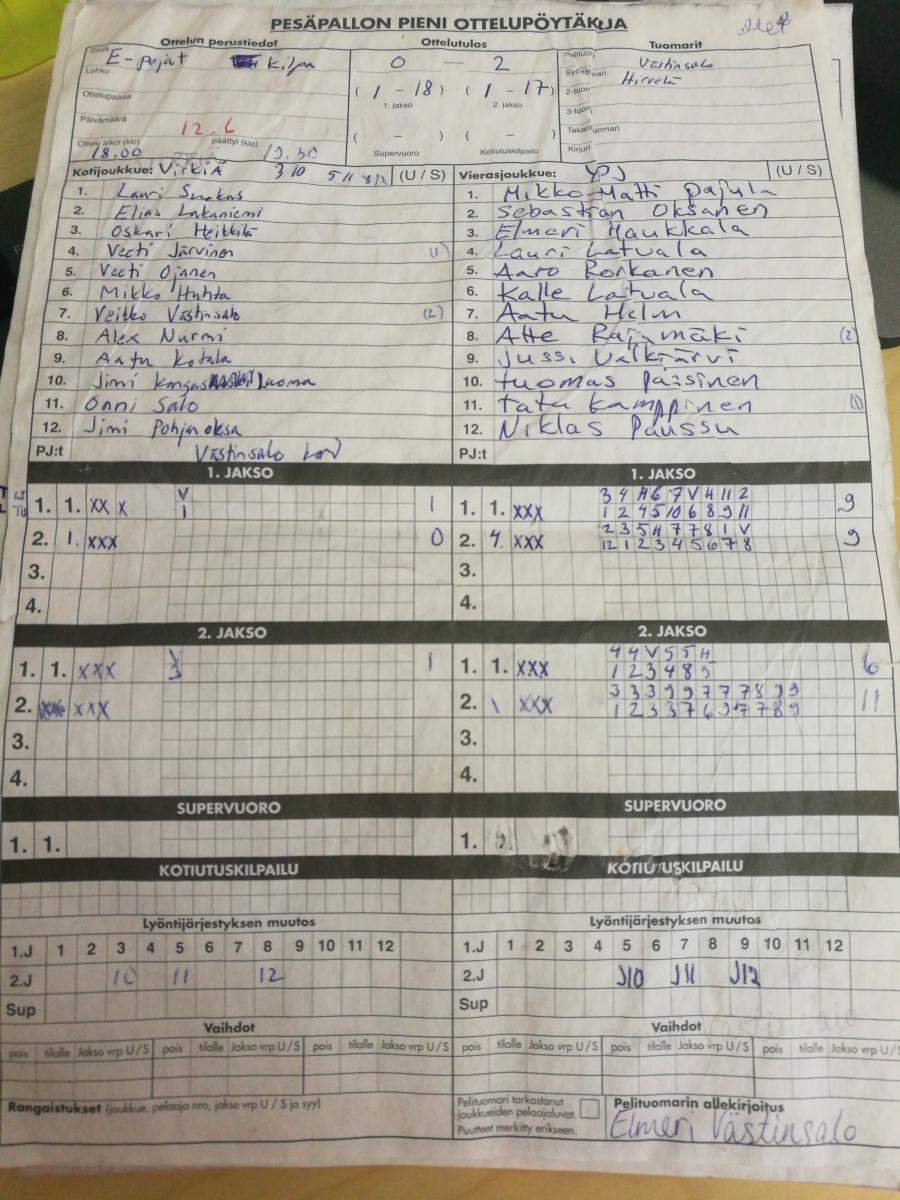 PESÄPALLON PIENI OTTELUPÖYTÄKIRJA
Ottelun perustiedot Ottelutulos Tuomarit
Sarja E-pojat kilpa 0 — 2 Pelituomari Västinsalo
Lohko Syöttötuomari Hirvelä
( 1 - 18 ) ( 1 - 17 ) 2-tuomari
Ottelupaikka 1. jakso 2. jakso 3-tuomari
Päivämäärä 12.6 ( - ) ( - ) Takarajatuomari
Ottelu alkoi (klo) 18.00 päättyi (klo) 19.30 Supervuoro Kotiutuskilpailu Kirjuri
Kotijoukkue: Virkiä 3 10 5 11 8/12 (U / S) Vierasjoukkue: YPJ (U / S)
1. Lauri 1. Mikko-Matti Pajula
2. Elias Lakaniemi 2. Sebastian Oksanen
3. Oskari Heikkilä 3. Elmeri Haukkala
4. Veeti Järvinen (1) 4. Lauri Latvala
5. Veeti Ojanen 5. Aaro Korkanen
6. Mikko Huhta 6. Kalle Latvala
7. Veikko Västinsalo (2) 7. Aatu Helm
8. Alex Nurmi 8. Atte Rajamäki (2)
9. Aatu Kotala 9. Jussi Valkjärvi
10. Jimi Kangas luoma 10. tuomas Pässinen
11. Onni Salo 11. tatu Kamppinen (1)
12. Jimi Pohjanoksa 12. Niklas Paussu
PJ:t Västinsalo PJ:t
1. JAKSO 1. JAKSO
V 3 4 H 6 7 V H 11 2
1. 1. XX X 1 1 1. 1. XXX 1 2 4 5 10 6 8 9 11 9
2 3 5 H 7 7 8 1 V
2. 1. XXX 0 2. 4. XXX 12 1 2 3 4 5 6 7 8 9
3. 3.
4. 4.
2. JAKSO 2. JAKSO
V 4 4 V 5 5 H
1. 1. XXX 3 1 1. 1. XXX 1 2 3 4 8 5 6
3 3 3 9 9 7 7 7 8 9 9
2. XXX 2. \ XXX 1 2 3 3 7 6 9 7 7 8 9 11
3. 3.
4. 4.
SUPERVUORO SUPERVUORO
1. 1. 1.
KOTIUTUSKILPAILU KOTIUTUSKILPAILU
Lyöntijärjestyksen muutos Lyöntijärjestyksen muutos
1.J 1 2 3 4 5 6 7 8 9 10 11 12 1.J 1 2 3 4 5 6 7 8 9 10 11 12
2.J 10 11 12 2.J J10 J11 J12
Sup Sup
Vaihdot Vaihdot
pois tilalle Jakso vrp U / S pois tilalle Jakso vrp U / S pois tilalle Jakso vrp U / S pois tilalle Jakso vrp U / S pois tilalle Jakso vrp U / S pois tilalle Jakso vrp U / S
Rangaistukset (joukkue, pelaaja nro, jakso vrp U / S ja syy) Pelituomari tarkastanut
joukkueiden pelaajaluvat.
Puutteet merkitty erikseen.
Pelituomarin allekirjoitus
Elmeri Västinsalo